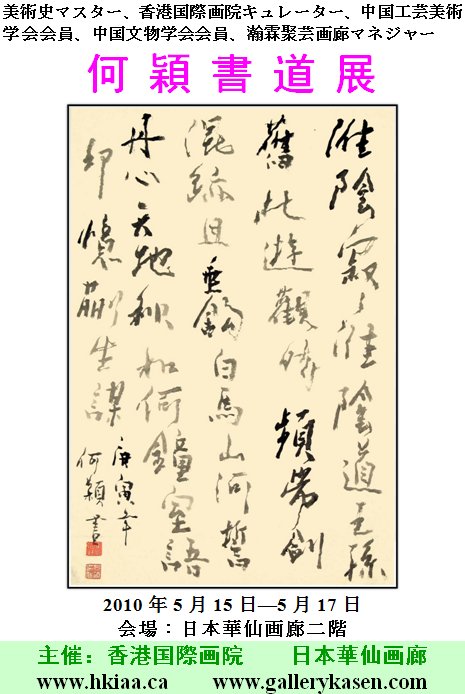 美術史マスター、香港国際画院キュレーター、中国工芸美術
学会会員、中国文物学会会員、瀚霖聚芸画廊マネジャー
何穎書道展
淮陰寂々淮陰道王孫
舊此遊觀時頻帶劍
混跡且垂鈎白馬山河誓
丹心天地秋如何鐘室語
却憶蒯生謀
庚寅年
何穎書
2010年5月15日—5月17日
会場：日本華仙画廊二階
主催：香港国際画院 日本華仙画廊
www.hkiaa.ca www.gallerykasen.com